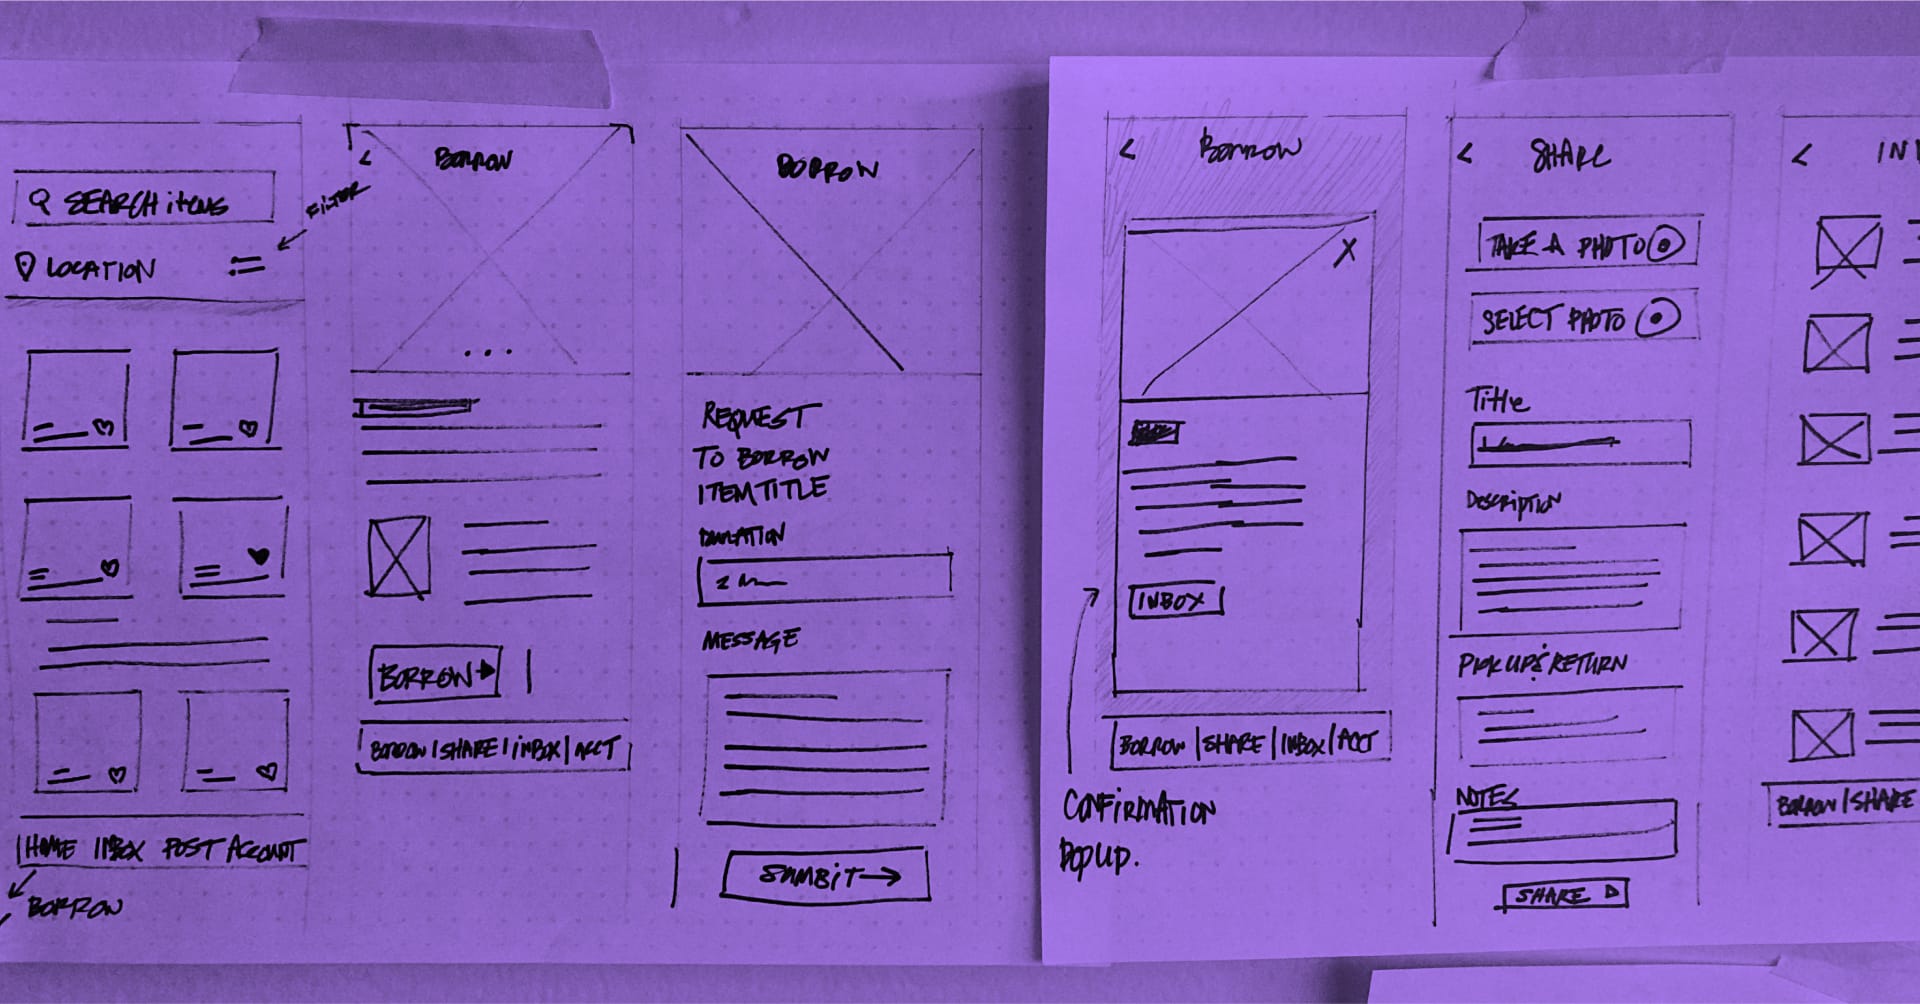 SEARCH items
LOCATION
FILTER
HOME INBOX POST ACCOUNT
BORROW
< BORROW
...
BORROW →
BORROW | SHARE | INBOX | ACCT
BORROW
REQUEST
TO BORROW
ITEM TITLE
DURATION
2
MESSAGE
SUMBIT →
< BORROW
X
INBOX
BORROW | SHARE | INBOX | ACCT
CONFIRMATION
POPUP.
< SHARE
TAKE A PHOTO
SELECT PHOTO
Title
Description
PICK UP & RETURN
NOTES
SHARE
< IN
BORROW | SHARE